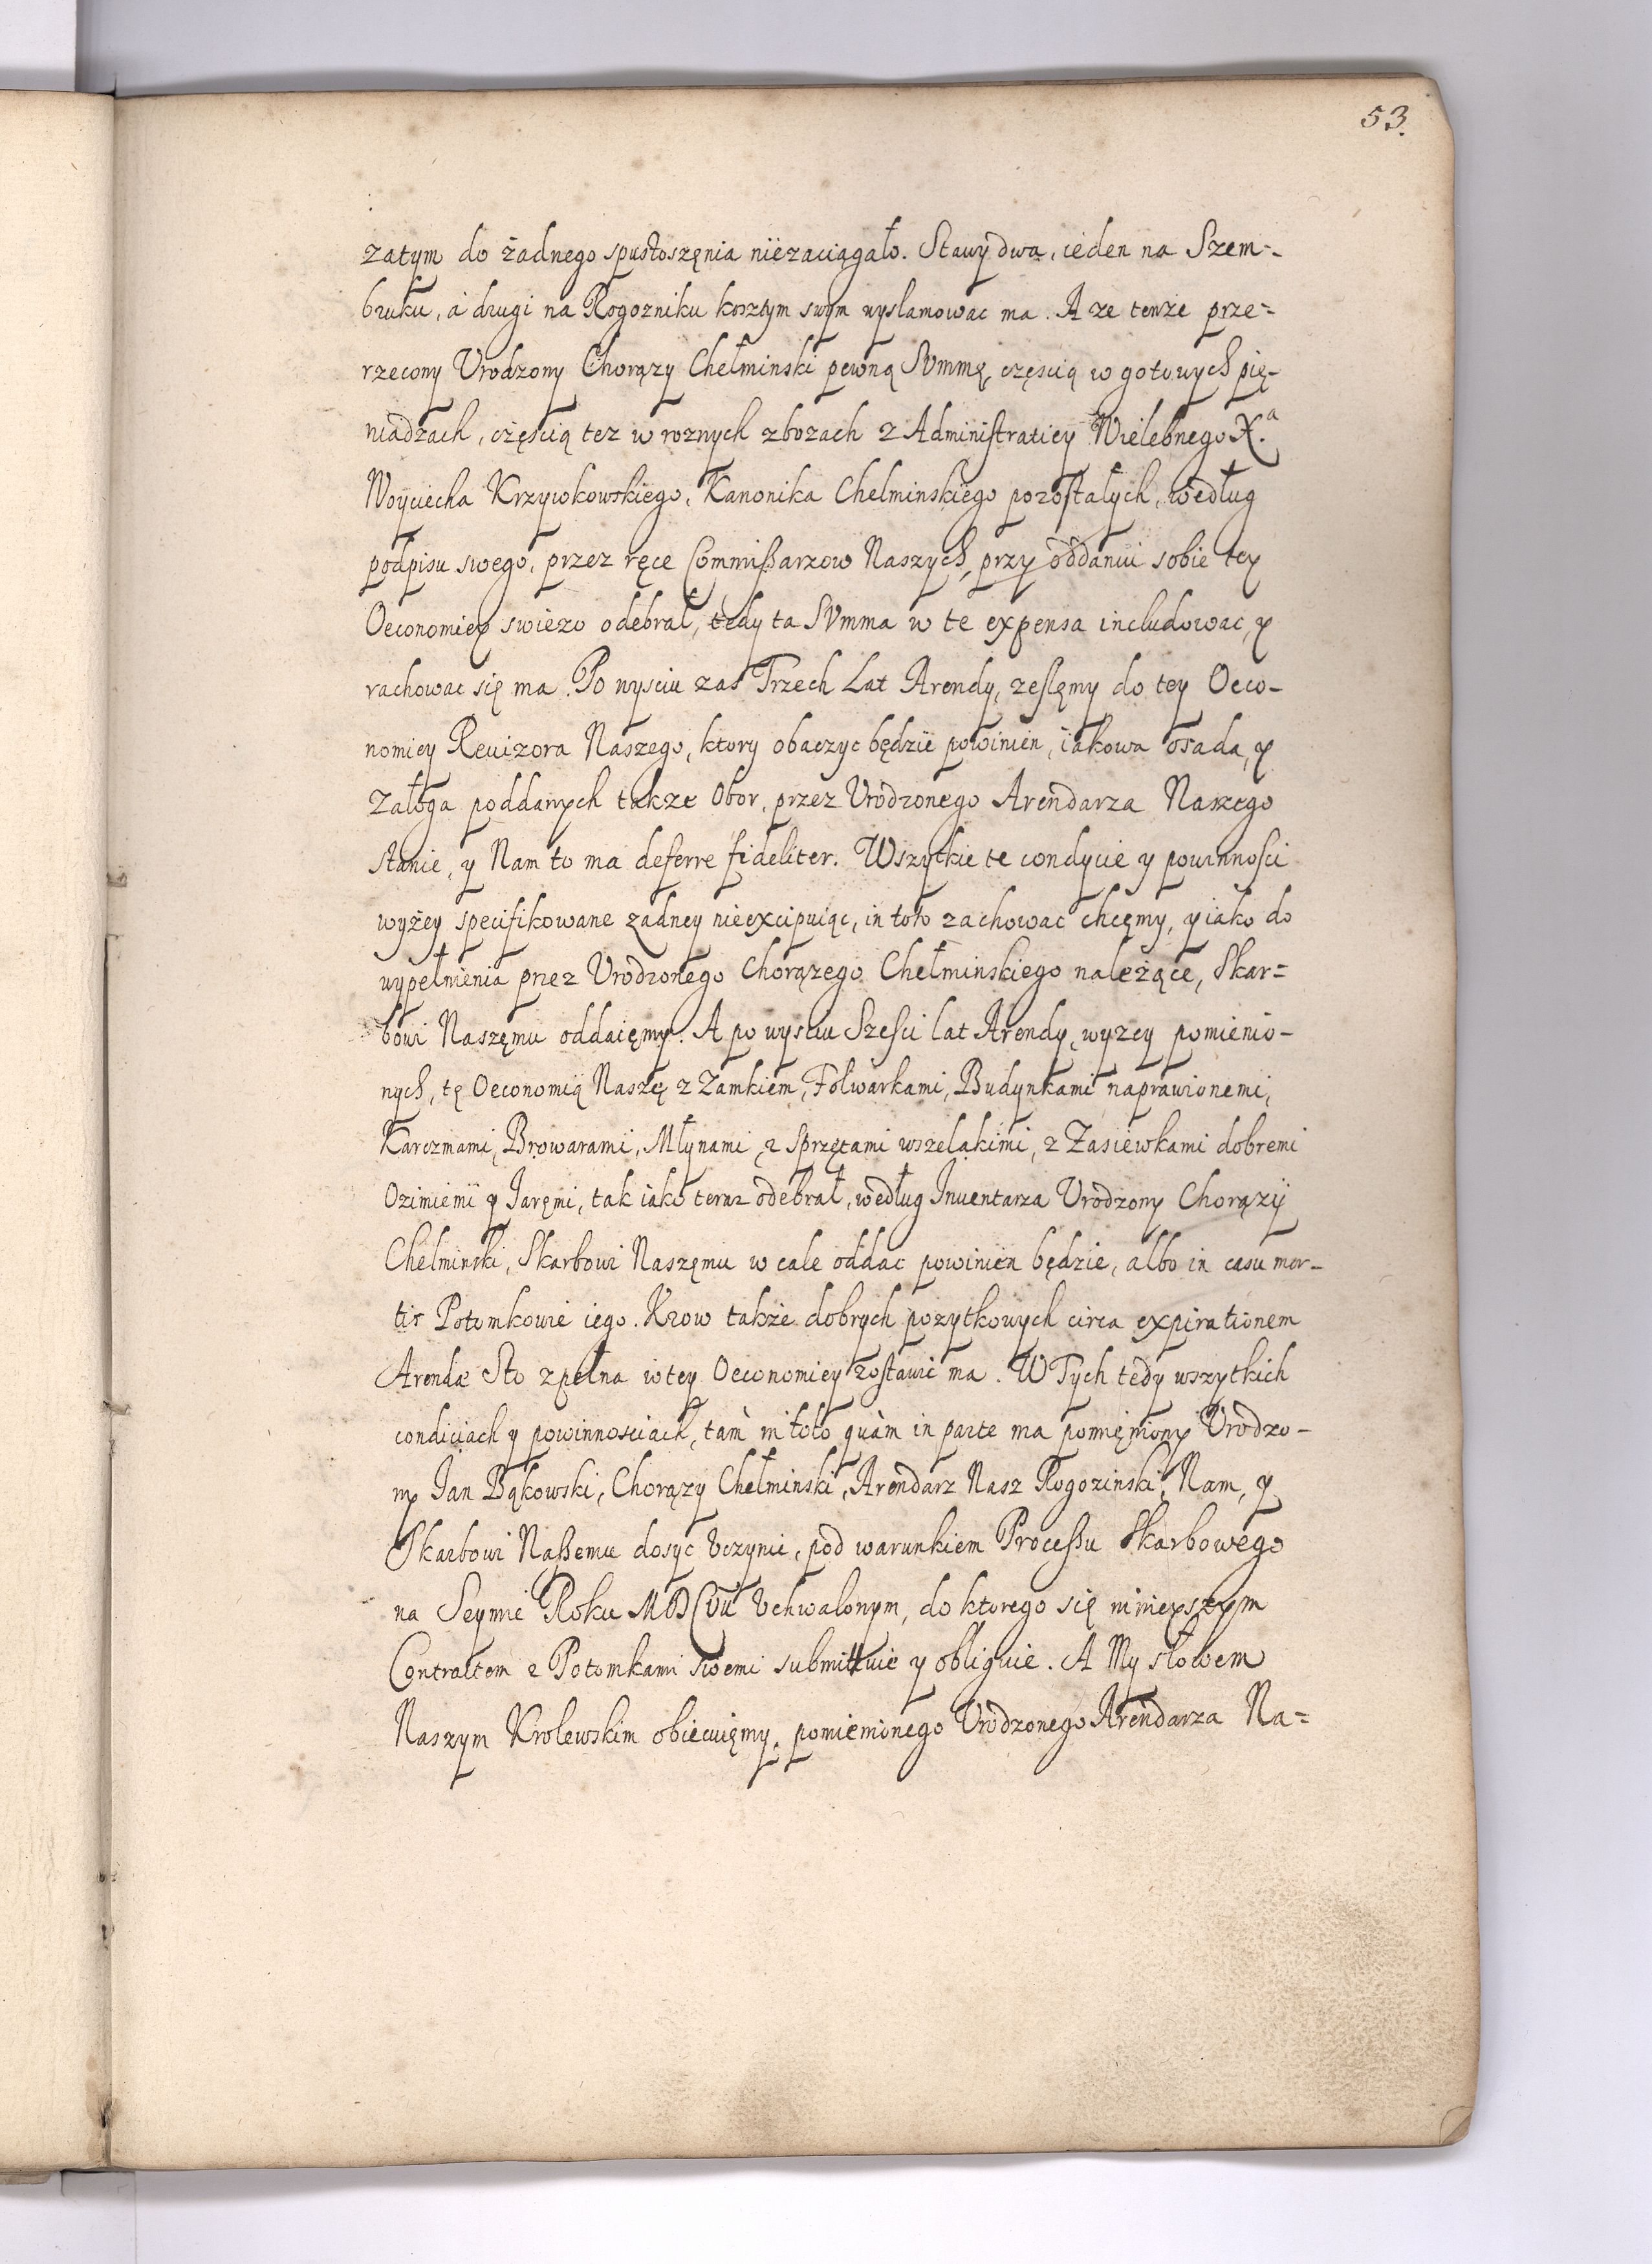 53.
zatym do żadnego spustoszęnia niezaciągało. Stawy dwa, ieden na Szem=
bruku, á drugi na Rogozniku kosztym swym wyslamowac ma. A ze tenże prze=
rzecony Vrodzony Chorązy Chełminski pewną SVmmę, częscią w gotowych pię-
niadzach, częscią tez w roznych zbozach z Administratiey Wielebnego X.a
Woyciecha Krzywkowskiego, Kanonika Chelminskiego pozostałych, według
podpisu swego, przez ręce Commißarzow Naszych, przy oddaniu sobie tey
Oeconomiey swiezo odebrał, tedy ta SVmma w te expensa includowac, y
rachowac się ma. Po wysciu zas Trzech Lat Arendy, zeslęmy do tey Oeco-
nomiey Reuizora Naszego, ktory obaczyc będzie powinien, iakowa osada, y
Załoga poddanych takze Obor, przez Vrodzonego Arendarza Naszego
stanie, y Nam to ma deferre fideliter. Wszytkie te condycie y powinnosci
wyżey specifikowane zadney nieexcipuiąc, in toto zachowac chcęmy, y iako do
wypełnienia przez Vrodzonego Chorązego Chełminskiego należące, Skar=
bowi Naszęmu oddaięmy. A po wysciu Szesci lat Arendy, wyzey pomienio-
nych, tę Oeconomią Naszę z Zamkiem, Folwarkami, Budynkami naprawionemi,
Karczmami, Browarami, Młynami, z Sprzętami wszelakimi, z Zasiewkami dobremi
Ozimiemi y Jaręmi, tak iako teraz odebrał, według Inuentarza Vrodzony Chorązy
Chelminski, Skarbowi Naszęmu w cale oddac powinien będzie, albo in casu mor-
tis Potomkowie iego. Krow także dobrych pozytkowych circa expirationem
Arendæ Sto zpełna w tey Oeconomiey zostawic ma. W Tych tedy wszytkich
condiciach y powinnosciach, tàm in toto quàm in parte ma pomięniony Vrodzo-
ny Jan Bąkowski, Chorązy Chełminski, Arendarz Nasz Rogozinski, Nam, y
Skarbowi Naßemu dosyc vczynic, pod warunkiem Proceßu Skarbowego
na Seymie Roku MDCVII vchwalonym, do ktorego się ninieyszym
Contractem z Potomkami swemi submittuie y obliguie. A My słowem
Naszym Krolewskim obiecuięmy, pomienionego Vrodzonego Arendarza Na=